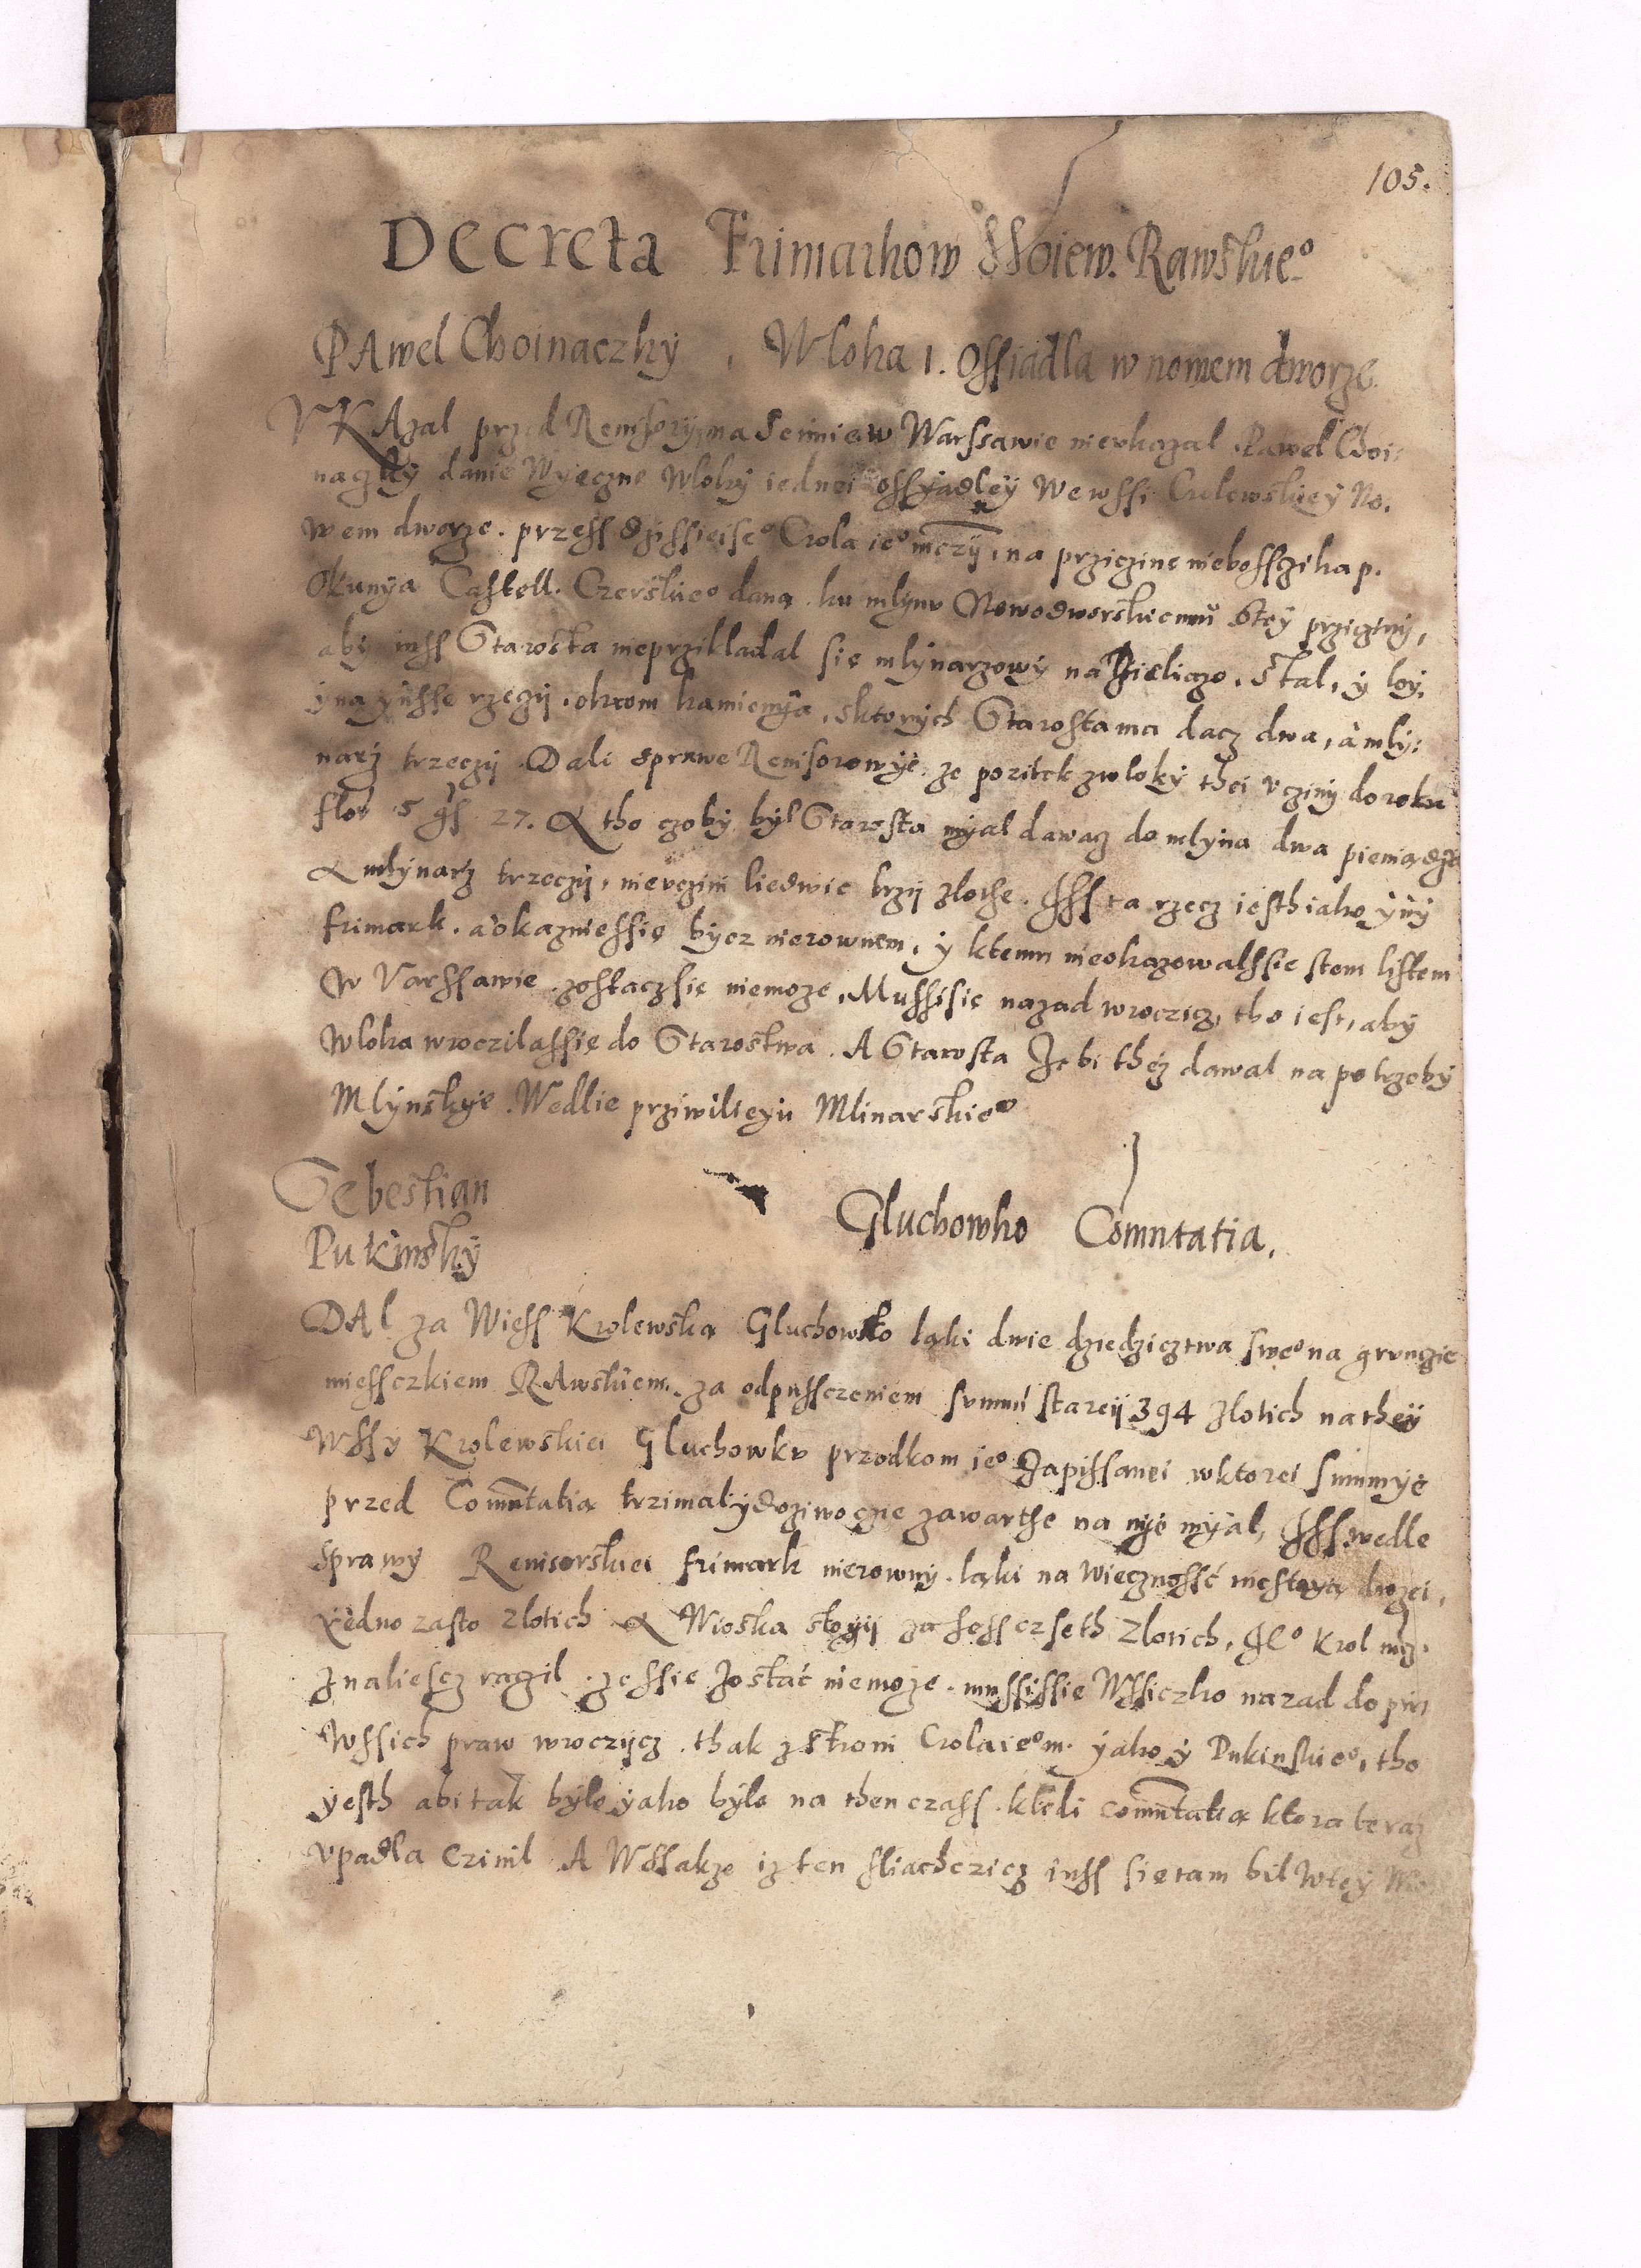 105.
Decreta Frimarkow Woiew. Rawskieº
PAwel Choinaczky , Wloka 1. Ossiadla w nowem dworze
VKAzal przed Rewisorzy, na Seimie w Warssawie nieukazal Pawel Choi:
naczky danie Wyeczne Wloky iednei ossyadley we wssi Crolewskiey No.
wem dworze. przess dzissieiseº Crola ieº mczÿ, na przicine niebosszika p.
Okunya Castell. Czerskieº dana ku mlynu Nowodworskiemu Stey przicziny,
aby inss Starosta nieprzikladal się mlynarzowy na Zieliazo, Stal, y loy,
y na ynsse rzeczy, okrom kamienya, sktorych Starosta ma dacz dwa, a mly:
narz trzeczy. Dali sprawe Rewisorowye, ze pozitek zwloky thei vcziny do roku
flo. 5 gs 27. A tho czoby byl Starosta myal dawacz do mlyna dwa pieniądza
A mlynarz trzeczy, nievczini liedwie trzy zlothe. Iss ta rzecz iesth iako yny
frimark. a okaznie ssie bycz nierownem, y ktemu nieokazowal ssie stem listem
W Varssawie. zostacz się niemoze, Muss się nazad wroczicz, tho iest, aby
Wloka wroczila ssie do Starostwa. A Starosta Zebi thez dawal na potrzeby
Mlynskye. Wedlie prziwilieyu Mlinarskieº
Sebestian
Pukinsky
Gluchowko Comutatia.
DAl za Wiess Krolewska Gluchowko laki dwie dziedzicztwa sweº na gruncie
miessczkiem RAwskiem. za odpussczeniem summi starey 394 zlotich na they
Wssy Krolewskiei Gluchowku przodkom ieº Zapissanei wktorei summye
przed Comutatia trzimal y doziwocze zawarthe na nye myal, Iss wedle
sprawy Rewisorskiei frimark nierowny. laki na wiecznosść niestoya drozei,
Yedno za sto zlotich A Wioska stoyy za sessczseth zlotich, Ieº Krol mcz.
Znaliescz raczil. ze ssie Zostać niemoze. mussi ssie Wssiczko nazad do pirw
Wssich praw wroczycz. thak z stroni Crola ieº m. yako y Pukinskieº, tho
yesth abi tak bylo yako bylo na then czass. kiedi comutatia ktora teraz
vpadla czinil A Wssakze iz ten sliachczicz inss się tam bil Wtey